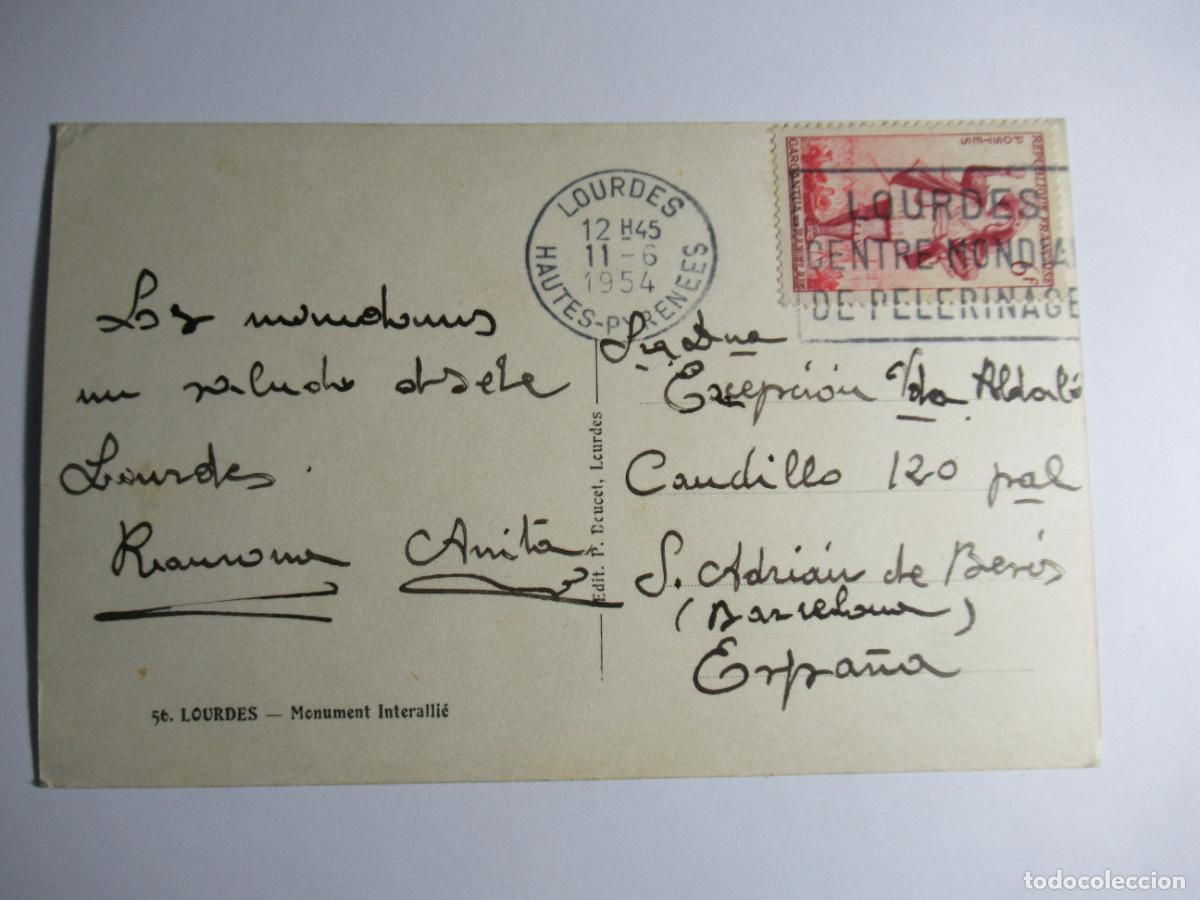 Les mandamos
un saludo desde
Lourdes.
Ramona Anita
56. LOURDES — Monument Interallié
Edit. P. Doucet, Lourdes
LOURDES
12 H45
11-6
1954
HAUTES-PYRENEES
REPUBLIQUE FRANÇAISE
POSTES
GARGANTUA DE RABELAIS
6f
LOURDES
CENTRE MONDIA
DE PELERINAGE
Vda
Caudillo 120 pral
S. Adrián de Besós
(Barcelona)
España
todocoleccion